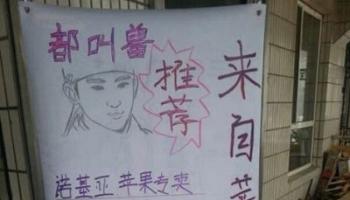 都叫兽
推荐
来自
诺基亚 苹果专卖